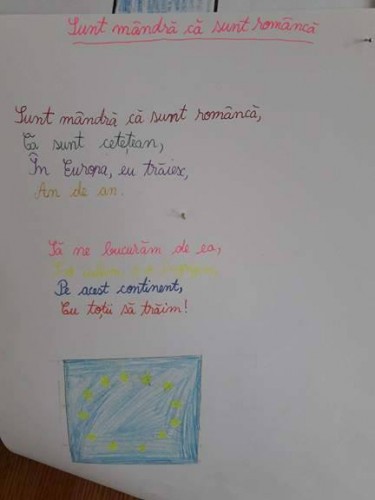 Sunt mândră că sunt româncă
Sunt mândră că sunt româncă,
Că sunt cetețean,
În Europa, eu trăiesc,
An de an.
Să ne bucurăm de ea,
Pe acest continent,
Cu toții să trăim!